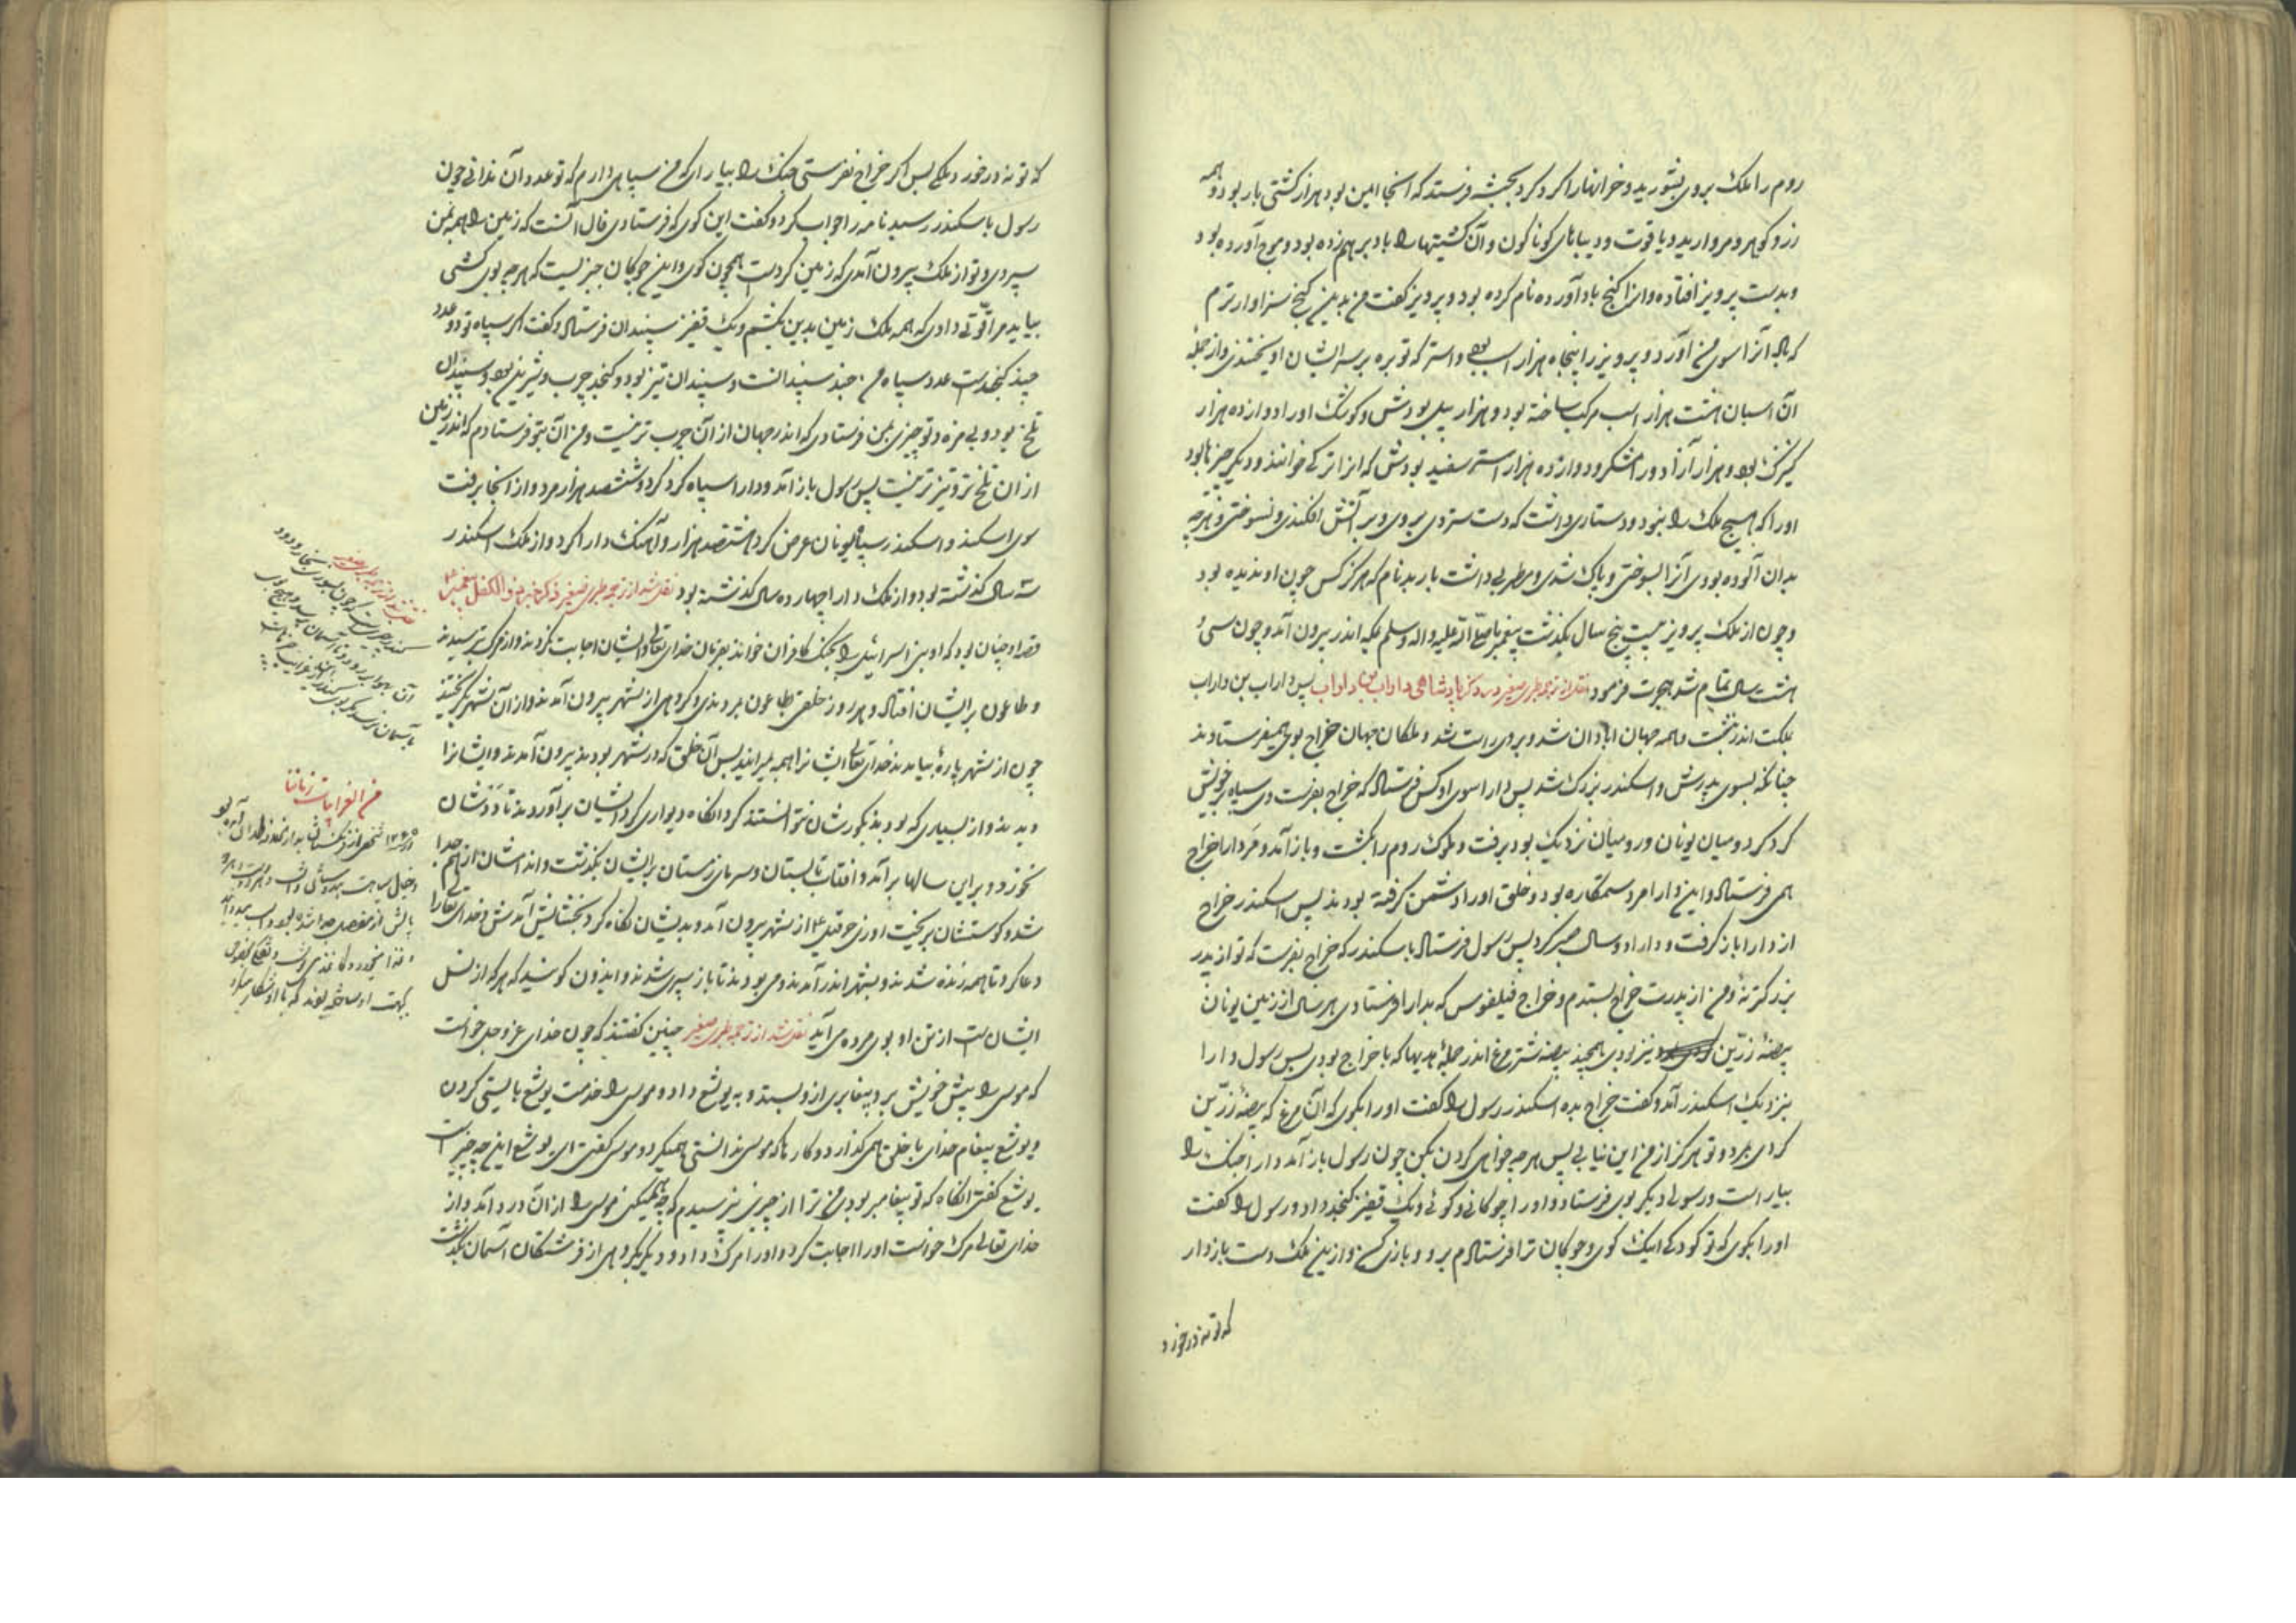 روم را ملک بروی بشورید و خزانها را کرد کرد بحبشه فرستد که آنجا ایمن بود هزار کشتی بار بود و همه
زر و کوهر و مروارید و یاقوت و دیباهای کوناکون و آن کشتیها را باد بر هم زده بود و موج آورده بود
و بدست پرویز افتاده و انرا کنج باد آورده نام کرده بود و پرویز کفت من بدین کنج سزاوارترم
که باد آنرا سوی من آورد و پرویز را پنجاه هزار اسب بود و استر که توبره بر سر ایشان اویختندی و از جمله
آن اسبان هشت هزار اسب مرکب ساخته بود و هزار پیل بودش و کوشک او را دوازده هزار
کنیزک بود و هزار آزاد و را مشکر و دوازده هزار استر سفید بودش که انرا ترکی خوانند و دیکر چیزها بود
او را که هیچ ملک را نبود و دستاری داشت که دست ستردی بروی و بر آتش افکندی و نسوختی و هر چه
بدان آلوده بودی آنرا بسوختی و پاک شدی و مطربی داشت باربد نام که هرکز کس چون او ندیده بود
و چون از ملک پرویز بیست پنج سال بکذشت پیغمبر ما صلی الله علیه واله وسلم بمکه اندر بیرون آمد و چون سی و
هشت سال تمام شد هجرت فرمود نقل از ترجمه طبری صغیر در ذکر پادشاهی داراب بن داراب پس داراب بن داراب
بملکت اندر بنشست و همه جهان ابادان شد و بروی راست شد و ملکان جهان خراج بوی همیفرستادند
چنانکه بسوی پدرش و اسکندر بزرک شد پس دارا سوی او کس فرستاد که خراج بفرست وی سپاه خویش
کرد کرد و میان یونان و رومیان نزدیک بود برفت و ملوک روم را بکشت و باز آمد و مر دارا خراج
همی فرستاد و این دارا مرد ستمکاره بود و خلق او را دشمن کرفته بودند پس اسکندر خراج
از دارا باز کرفت و دارا دو سال صبر کرد پس رسول فرستاد باسکندر که خراج بفرست که تو از پدر
بزرکتر نهٔ و من از پدرت خراج بستدم و خراج فیلفوس که بدارا فرستادی هر سال از زمین یونان
بیضهٔ زرین و نیز بودی همچند بیضه شتر مرغ اندر جملهٔ هدیها که با خراج بودی پس رسول دارا
بنزدیک اسکندر آمد و کفت خراج بده اسکندر رسول را کفت او را بکوی که آن مرغ که بیضهٔ زرین
کردی بمرد و تو هرکز از من این نیابی پس هر چه خواهی کردن بکن چون رسول باز آمد دارا جنک را
بیاراست و رسولی دیکر بوی فرستاد و او را چوکانی و کوئی و یک قفیز کنجد داد و رسول را کفت
او را بکوی که تو کودکی اینک کوی و چوکان ترا فرستادم برو و بازی کن و از این ملک دست باز دار
که تو نه در خورد
که تو نه در خورد ملکی پس اکر خراج نفرستی جنک را بیارای که من سپاهی دارم که تو عدد آن ندانی چون
رسول باسکندر رسید نامه را جواب کرد و کفت این کوی که فرستادی فال آنست که زمین را همه بمن
سپردی و تو از ملک بیرون آمدی که زمین کردست همچون کوی و این چوکان چیزیست که هر چه بوی کشی
بیاید مرا قوتی دادی که همه ملک زمین بدین بکشم و یک قفیز سپندان فرستاد و کفت اکر سپاه تو در عدد
چند کنجدست عدد سپاه من چند سپندانست و سپندان تیز بود و کنجد چرب و شیرین بود و سپندان
تلخ بود و بی مزه و تو چیزی بمن فرستادی که اندر جهان از آن چرب تر نیست و من آن بتو فرستادم که اندر زمین
از ان تلخ تر و تیز تر نیست پس رسول باز آمد و دارا سپاه کرد کرد و ششصد هزار مرد و از آنجا برفت
سوی اسکندر و اسکندر سپاه یونان عرض کرد هشتصد هزار و آهنک دارا کرد و از ملک اسکندر
سه سال کذشته بود و از ملک دارا چهارده سال کذشته بود نقل شد از ترجمه طبری صغیر ذکر خبر ذو الکفل پیغمبر
قصه او چنان بود که او بنی اسرائیل را بجنک کافران خواند بفرمان خدای تعالی و ایشان اجابت نکردند و از مرک بترسیدند
و طاعون بر ایشان افتاد و هر روز خلقی بطاعون مردندی و کروهی از شهر بیرون آمدند و از آن شهر بکریختند
چون از شهر پارهٔ بیامدند خدای تعالی ایشانرا همه بمیرانید پس آن خلق که در شهر بودند بیرون آمدند و ایشانرا
دیدند و از بسیاری که بودند بکورشان نتوانستند کرد آنکاه دیواری کرد ایشان بر آوردند تا ددشان
نخورد و بر این سالها بر آمد و افتاب تابستان و سرمای زمستان بر ایشان بکذشت و اندامشان از هم جدا
شد و کوشتشان بریخت روزی حزقیل ع از شهر بیرون آمد و بدیشان نکاه کرد بخشایش آمدش و خدای تعالی را
دعا کرد تا همه زنده شدند و بشهر اندر آمدند و می بودند تا باز سپری شدند و ایدون کویند که هر که از نسل
ایشان است از تن او بوی مرده می آید نقل شد از ترجمه طبری صغیر چنین کفتند که چون خدای عز و جل خواست
که موسی را پیش خویش برد پیغامبری از و بستد و به یوشع داد و موسی را خدمت یوشع بایستی کردن
و یوشع پیغام خدای با خلق همی کذارد و کارها که موسی ندانستی همیکرد و موسی کفتی ای یوشع این چه چیز است
یوشع کفتی انکاه که تو پیغامبر بودی من ترا از چیزی نپرسیدم که چه همیکنی موسی را از آن درد آمد و از
خدای تعالی مرک خواست او را اجابت کرد و او را مرک داد و دیکر بکروهی از فرشتکان آسمان بکذشت
من الغرایبات زماننا